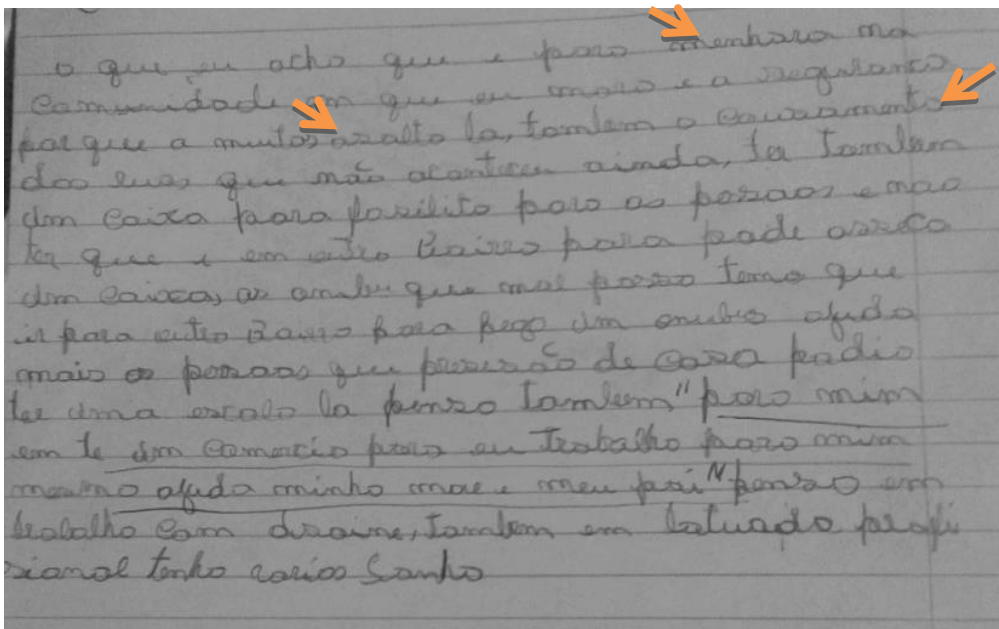 o que eu acho que e para menhara na
comunidade em que eu moro e a seguransa
porque a muitos asalto la, tambem o causamento
das ruas que não aconteceu ainda, ter tambem
um caixa para as pesoas e nao
ter que i em outro Bairro para
um caixa, as que mal pasa temo que
ir para outro Bairro para pega um onubis ajuda
mais as pesoas que de casa
ter uma escola la penso tambem "para mim
em te um comercio para eu trabalho para mim
mesmo ajuda minha mae e meu pai" penso em
trabalho com tambem em profi
sional tenho varios Sonho